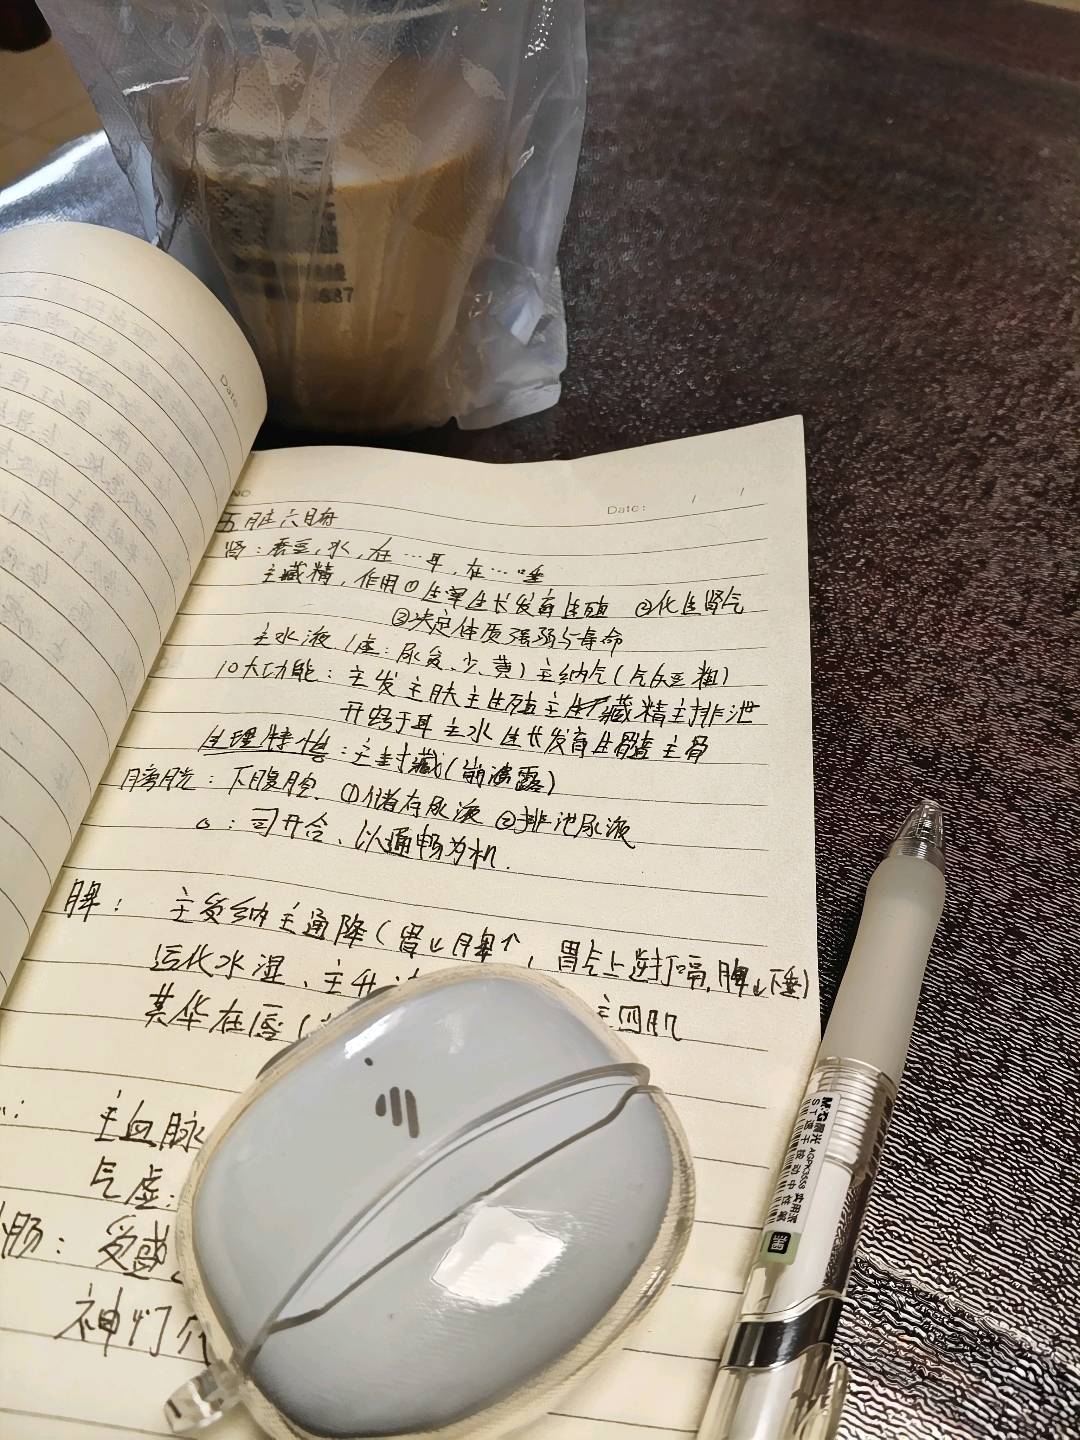 587
NO
Date:
Date: / /
五脏六腑
肾: 水, 在…耳, 在…唾
主藏精, 作用①生掌生长发育生殖 ②化生肾气
③决定体质强弱与寿命
主水液(虚: 尿多、少、黄) 主纳气(
10大功能: 主发 主肤 主生殖 主 藏精 主排泄
开窍于耳 主水 生长发育 生髓 主骨
生理特性: 主封藏(崩漏露)
膀胱: 下腹腔. ①储存尿液 ②排泄尿液
: 司开合、以通畅为机.
脾: 主受纳主通降(胃↓脾↑, 胃气上逆打嗝, 脾↓下垂)
运化水湿、主升
其华在唇( 主四肌
主血脉
气虚:
肠: 受盛
神
M&G 晨光